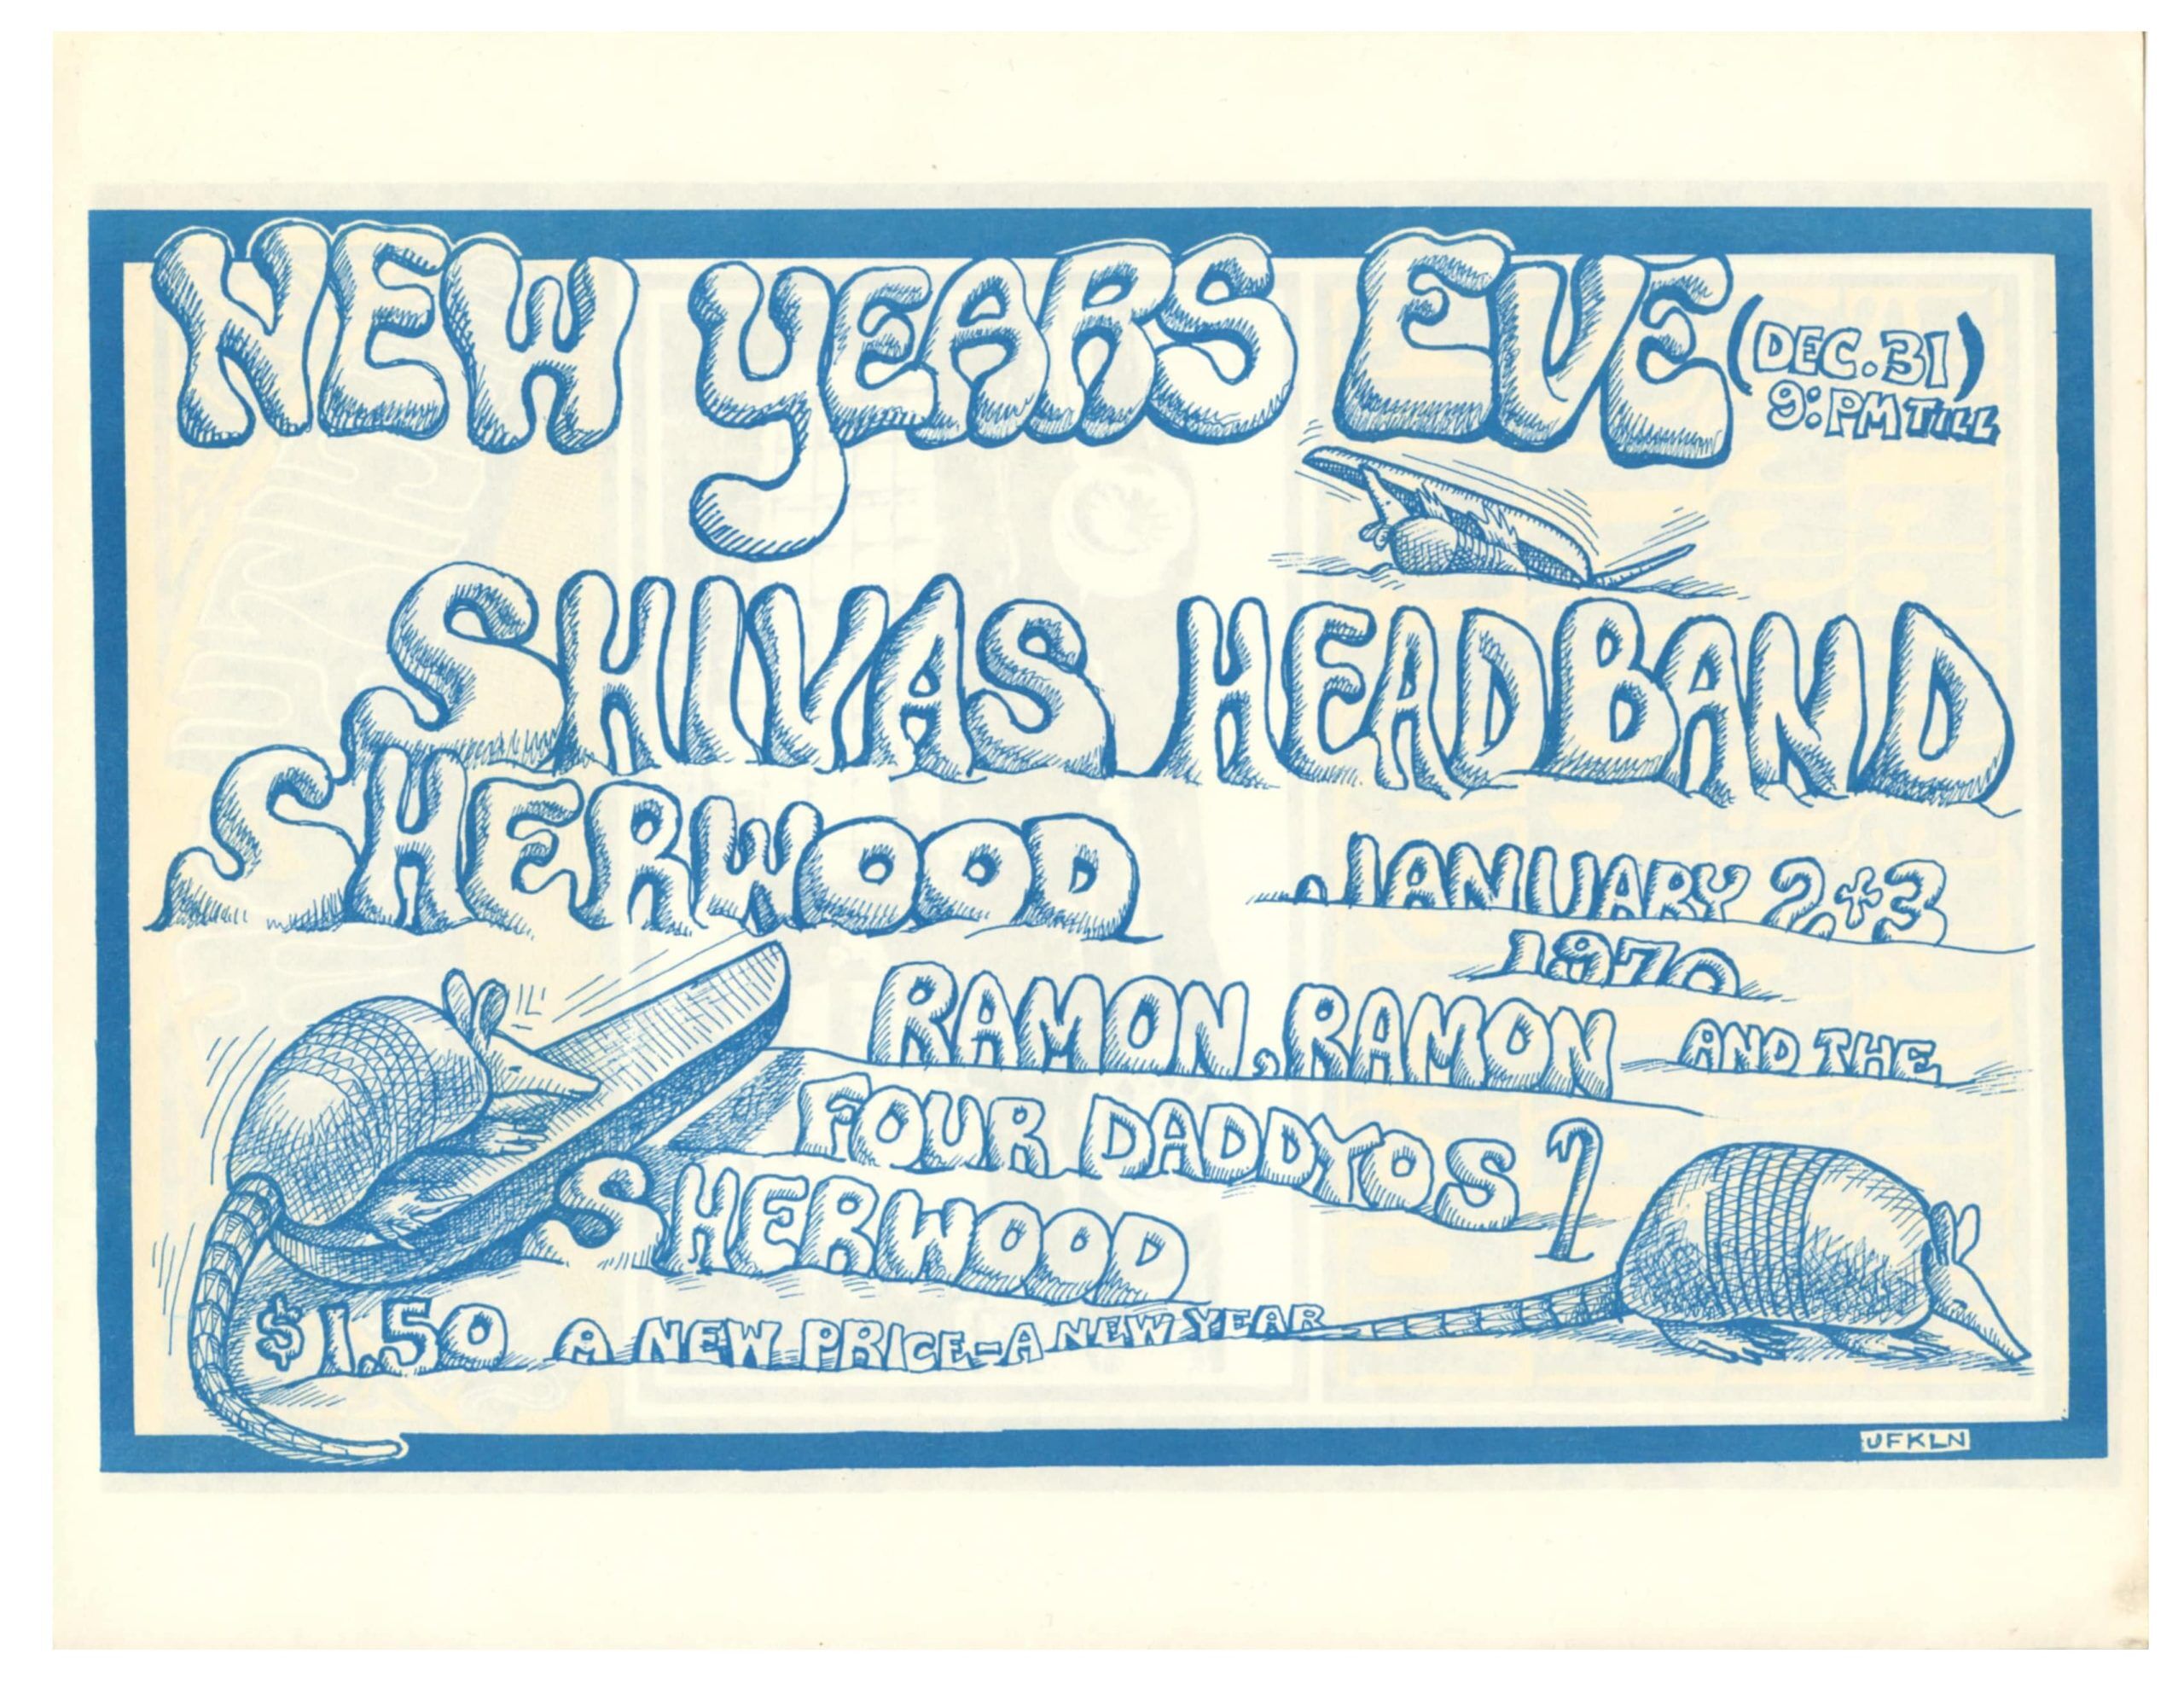 NEW YEARS EVE (DEC. 31)
9:PM TILL
SHIVAS HEADBAND
SHERWOOD
JANUARY 2+3
1970
RAMON, RAMON AND THE
FOUR DADDYOS
SHERWOOD
$1.50 A NEW PRICE-A NEW YEAR
JFKLN